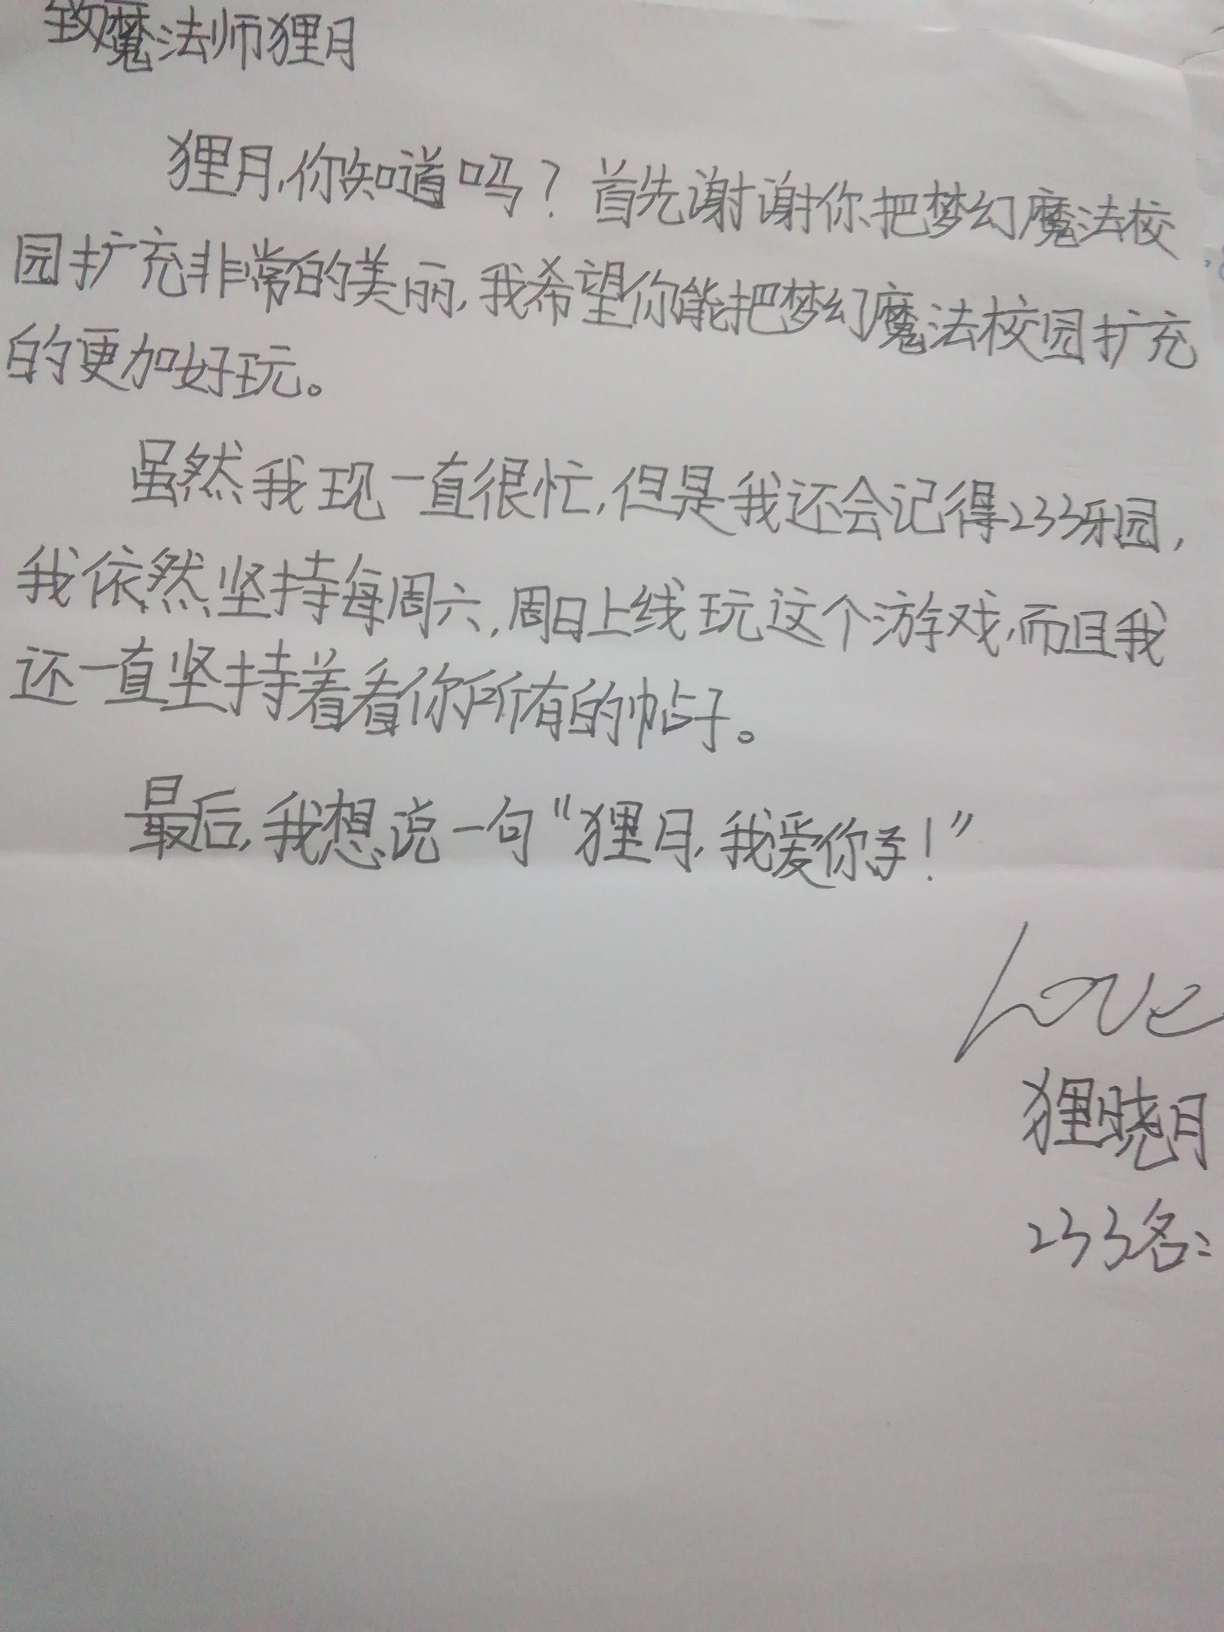 致魔法师狸月
狸月,你知道吗?首先谢谢你把梦幻魔法校
园扩充非常的美丽,我希望你能把梦幻魔法校园扩充
的更加好玩。
虽然我现一直很忙,但是我还会记得233乐园,
我依然坚持每周六,周日上线玩这个游戏,而且我
还一直坚持着看你所有的帖子。
最后,我想说一句“狸月,我爱你!”
Love
狸晓月
233名: